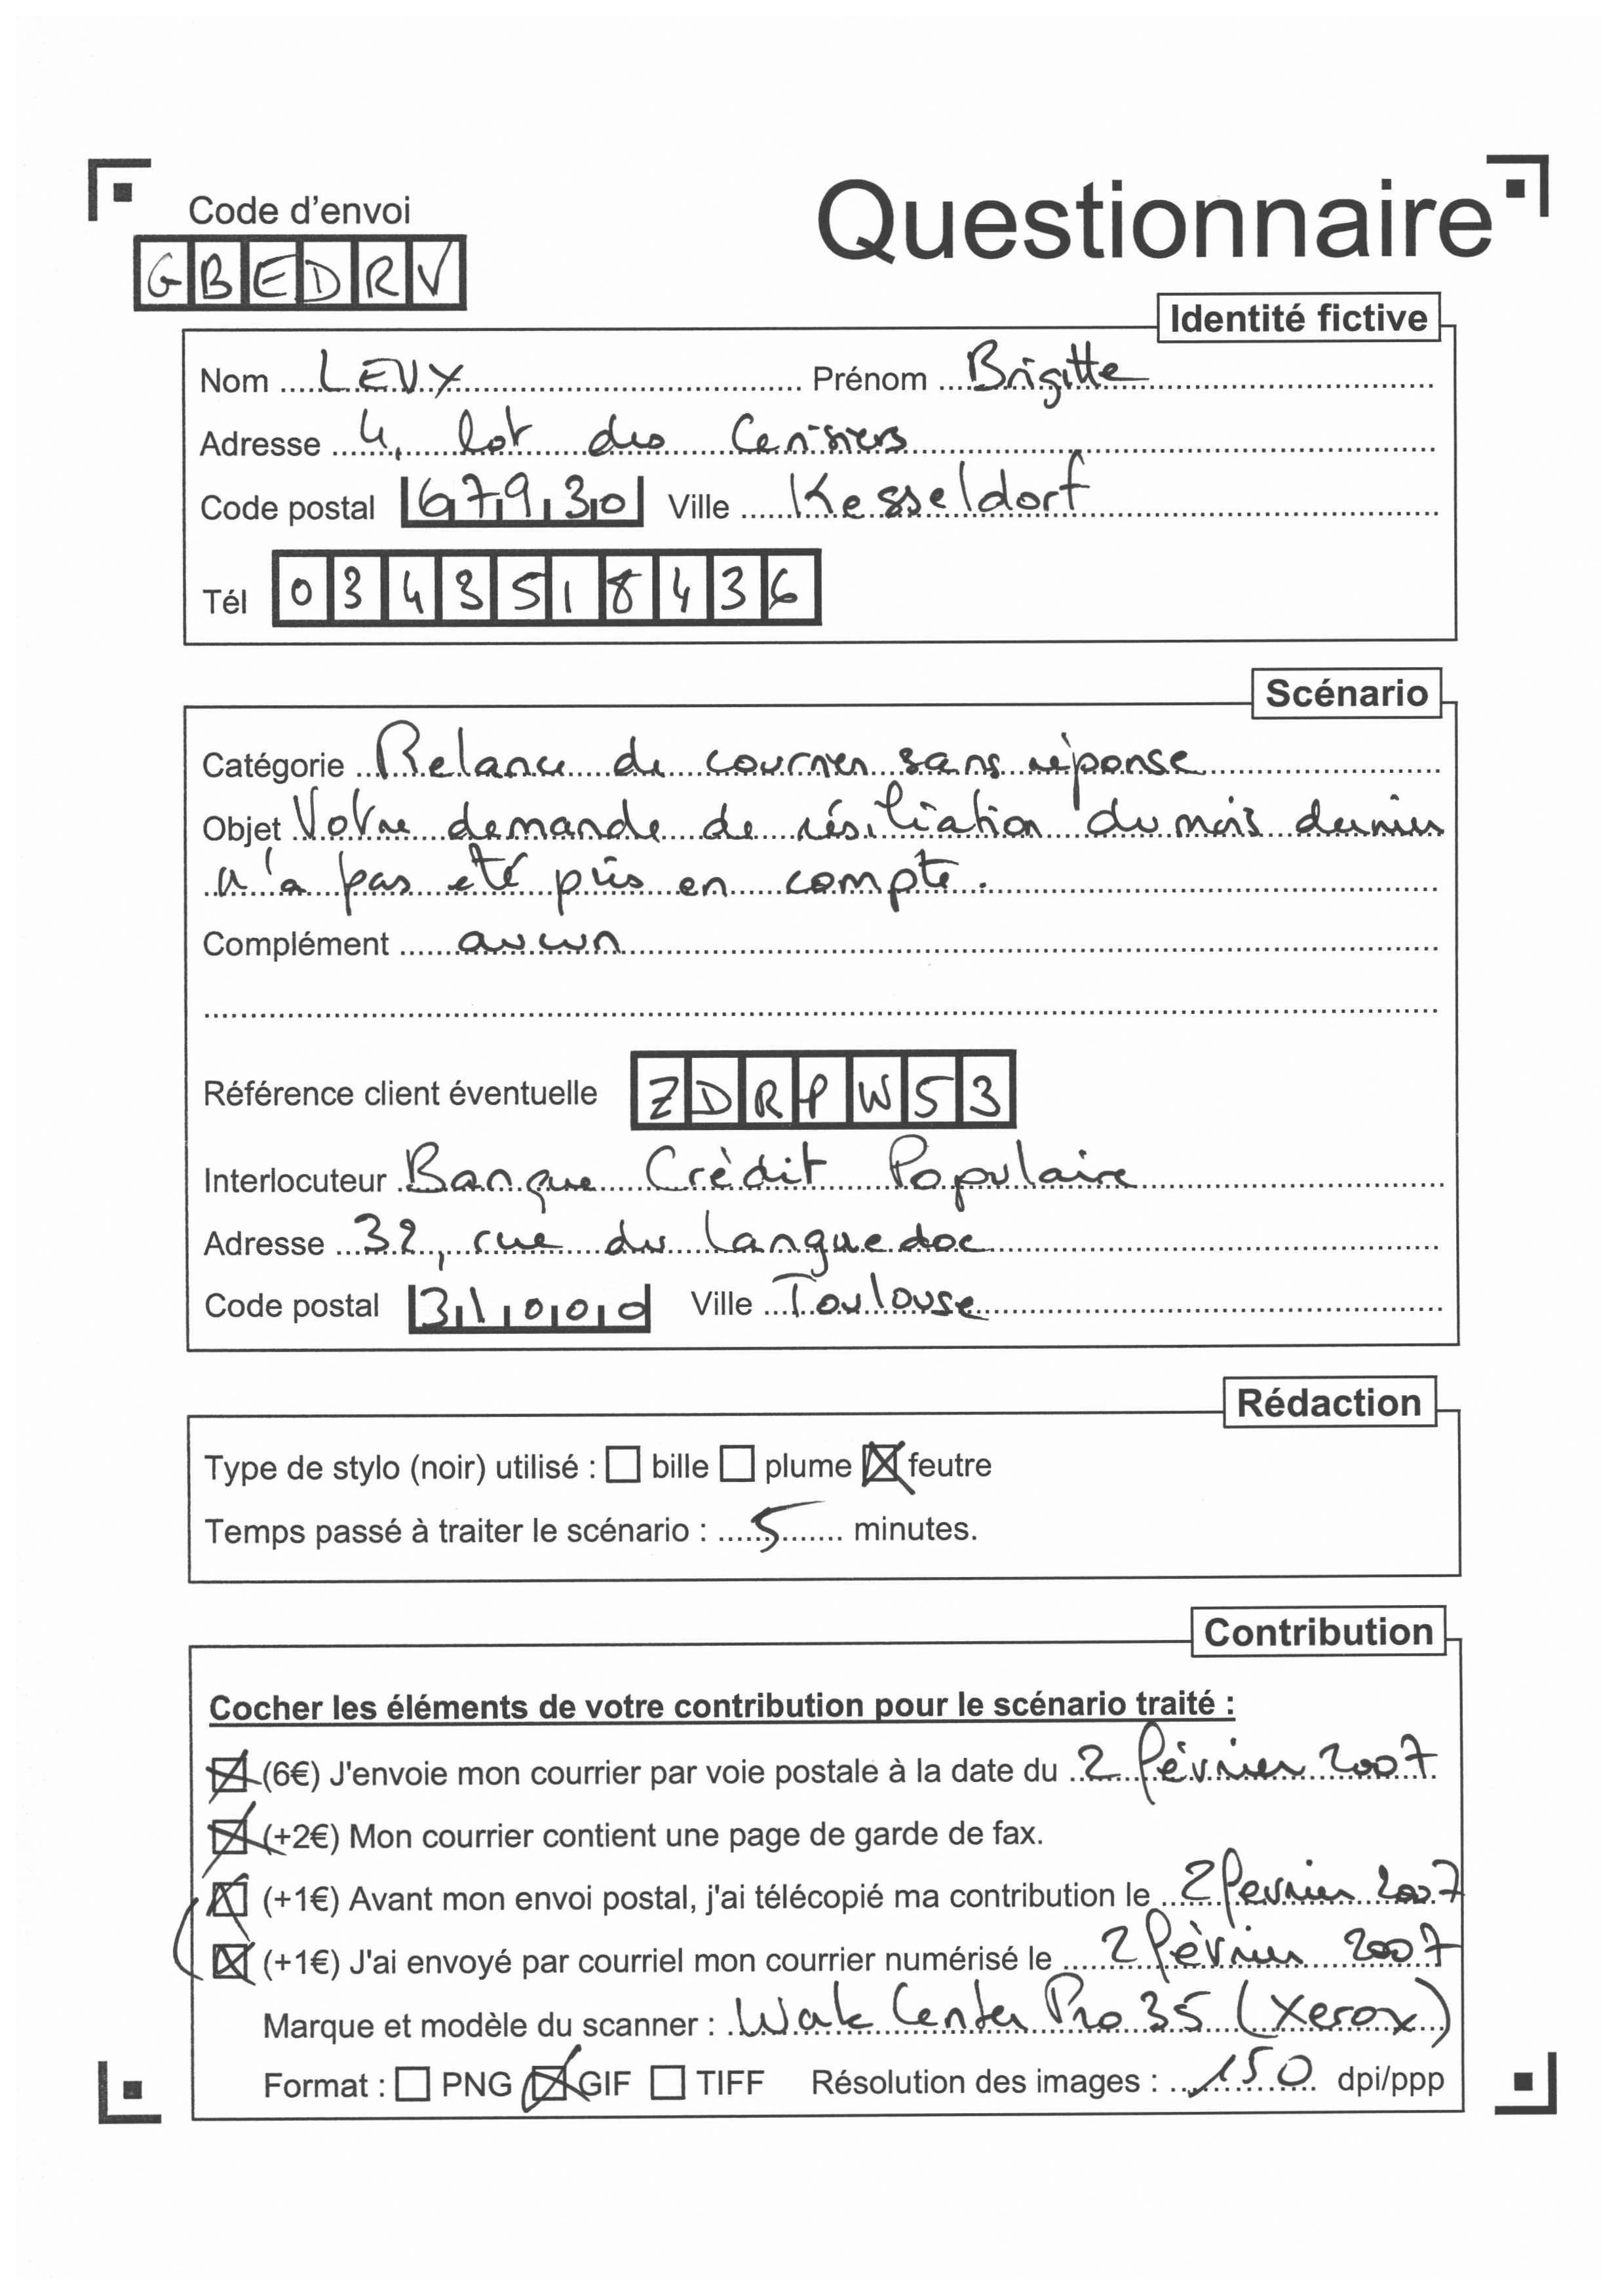 Code d'envoi
Questionnaire
GBEDRV
Identité fictive
Nom LEVY Prénom Brigitte
Adresse 4, lot des Cerisiers
Code postal 67930 Ville Kesseldorf
Tél 0343518436
Scénario
Catégorie Relance de courrier sans réponse
Objet Votre demande de résiliation du mois dernier
n'a pas été pris en compte.
Complément aucun
Référence client éventuelle ZDRPW53
Interlocuteur Banque Crèdit Populaire
Adresse 32, rue du Languedoc
Code postal 31000 Ville Toulouse
Rédaction
Type de stylo (noir) utilisé : ☐ bille ☐ plume ☒ feutre
Temps passé à traiter le scénario : 5 minutes.
Contribution
Cocher les éléments de votre contribution pour le scénario traité :
☒ (6€) J'envoie mon courrier par voie postale à la date du 2 février 2007
☒ (+2€) Mon courrier contient une page de garde de fax.
☒ (+1€) Avant mon envoi postal, j'ai télécopié ma contribution le 2 fevrier 2007
☒ (+1€) J'ai envoyé par courriel mon courrier numérisé le 2 fèvrier 2007
Marque et modèle du scanner : Work Center Pro 35 (Xerox)
Format : ☐ PNG ☒ GIF ☐ TIFF Résolution des images : 150 dpi/ppp